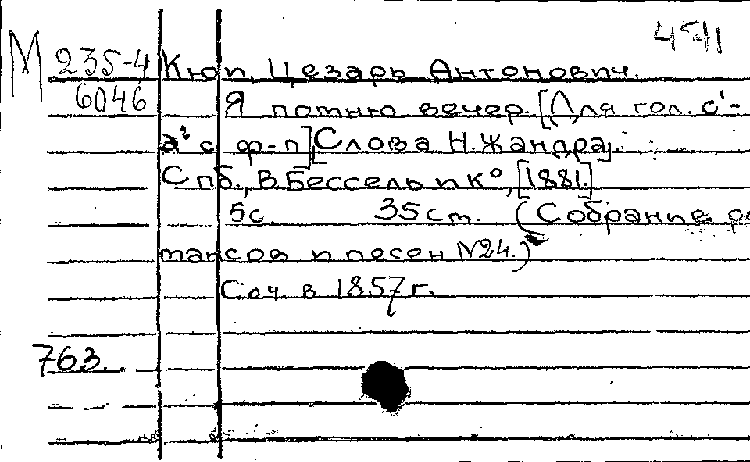 4541
М 235-4 Кюи, Цезарь Антонович.
6046 Я помню вечер. [Для гол. c'-
a² с ф-п], [Слова Н. Жандра].
Спб., В. Бессель и К°, [1881.]
5с. 35 см. (Собрание ро
мансов и песен №24.)
Соч. в 1857 г.
763.